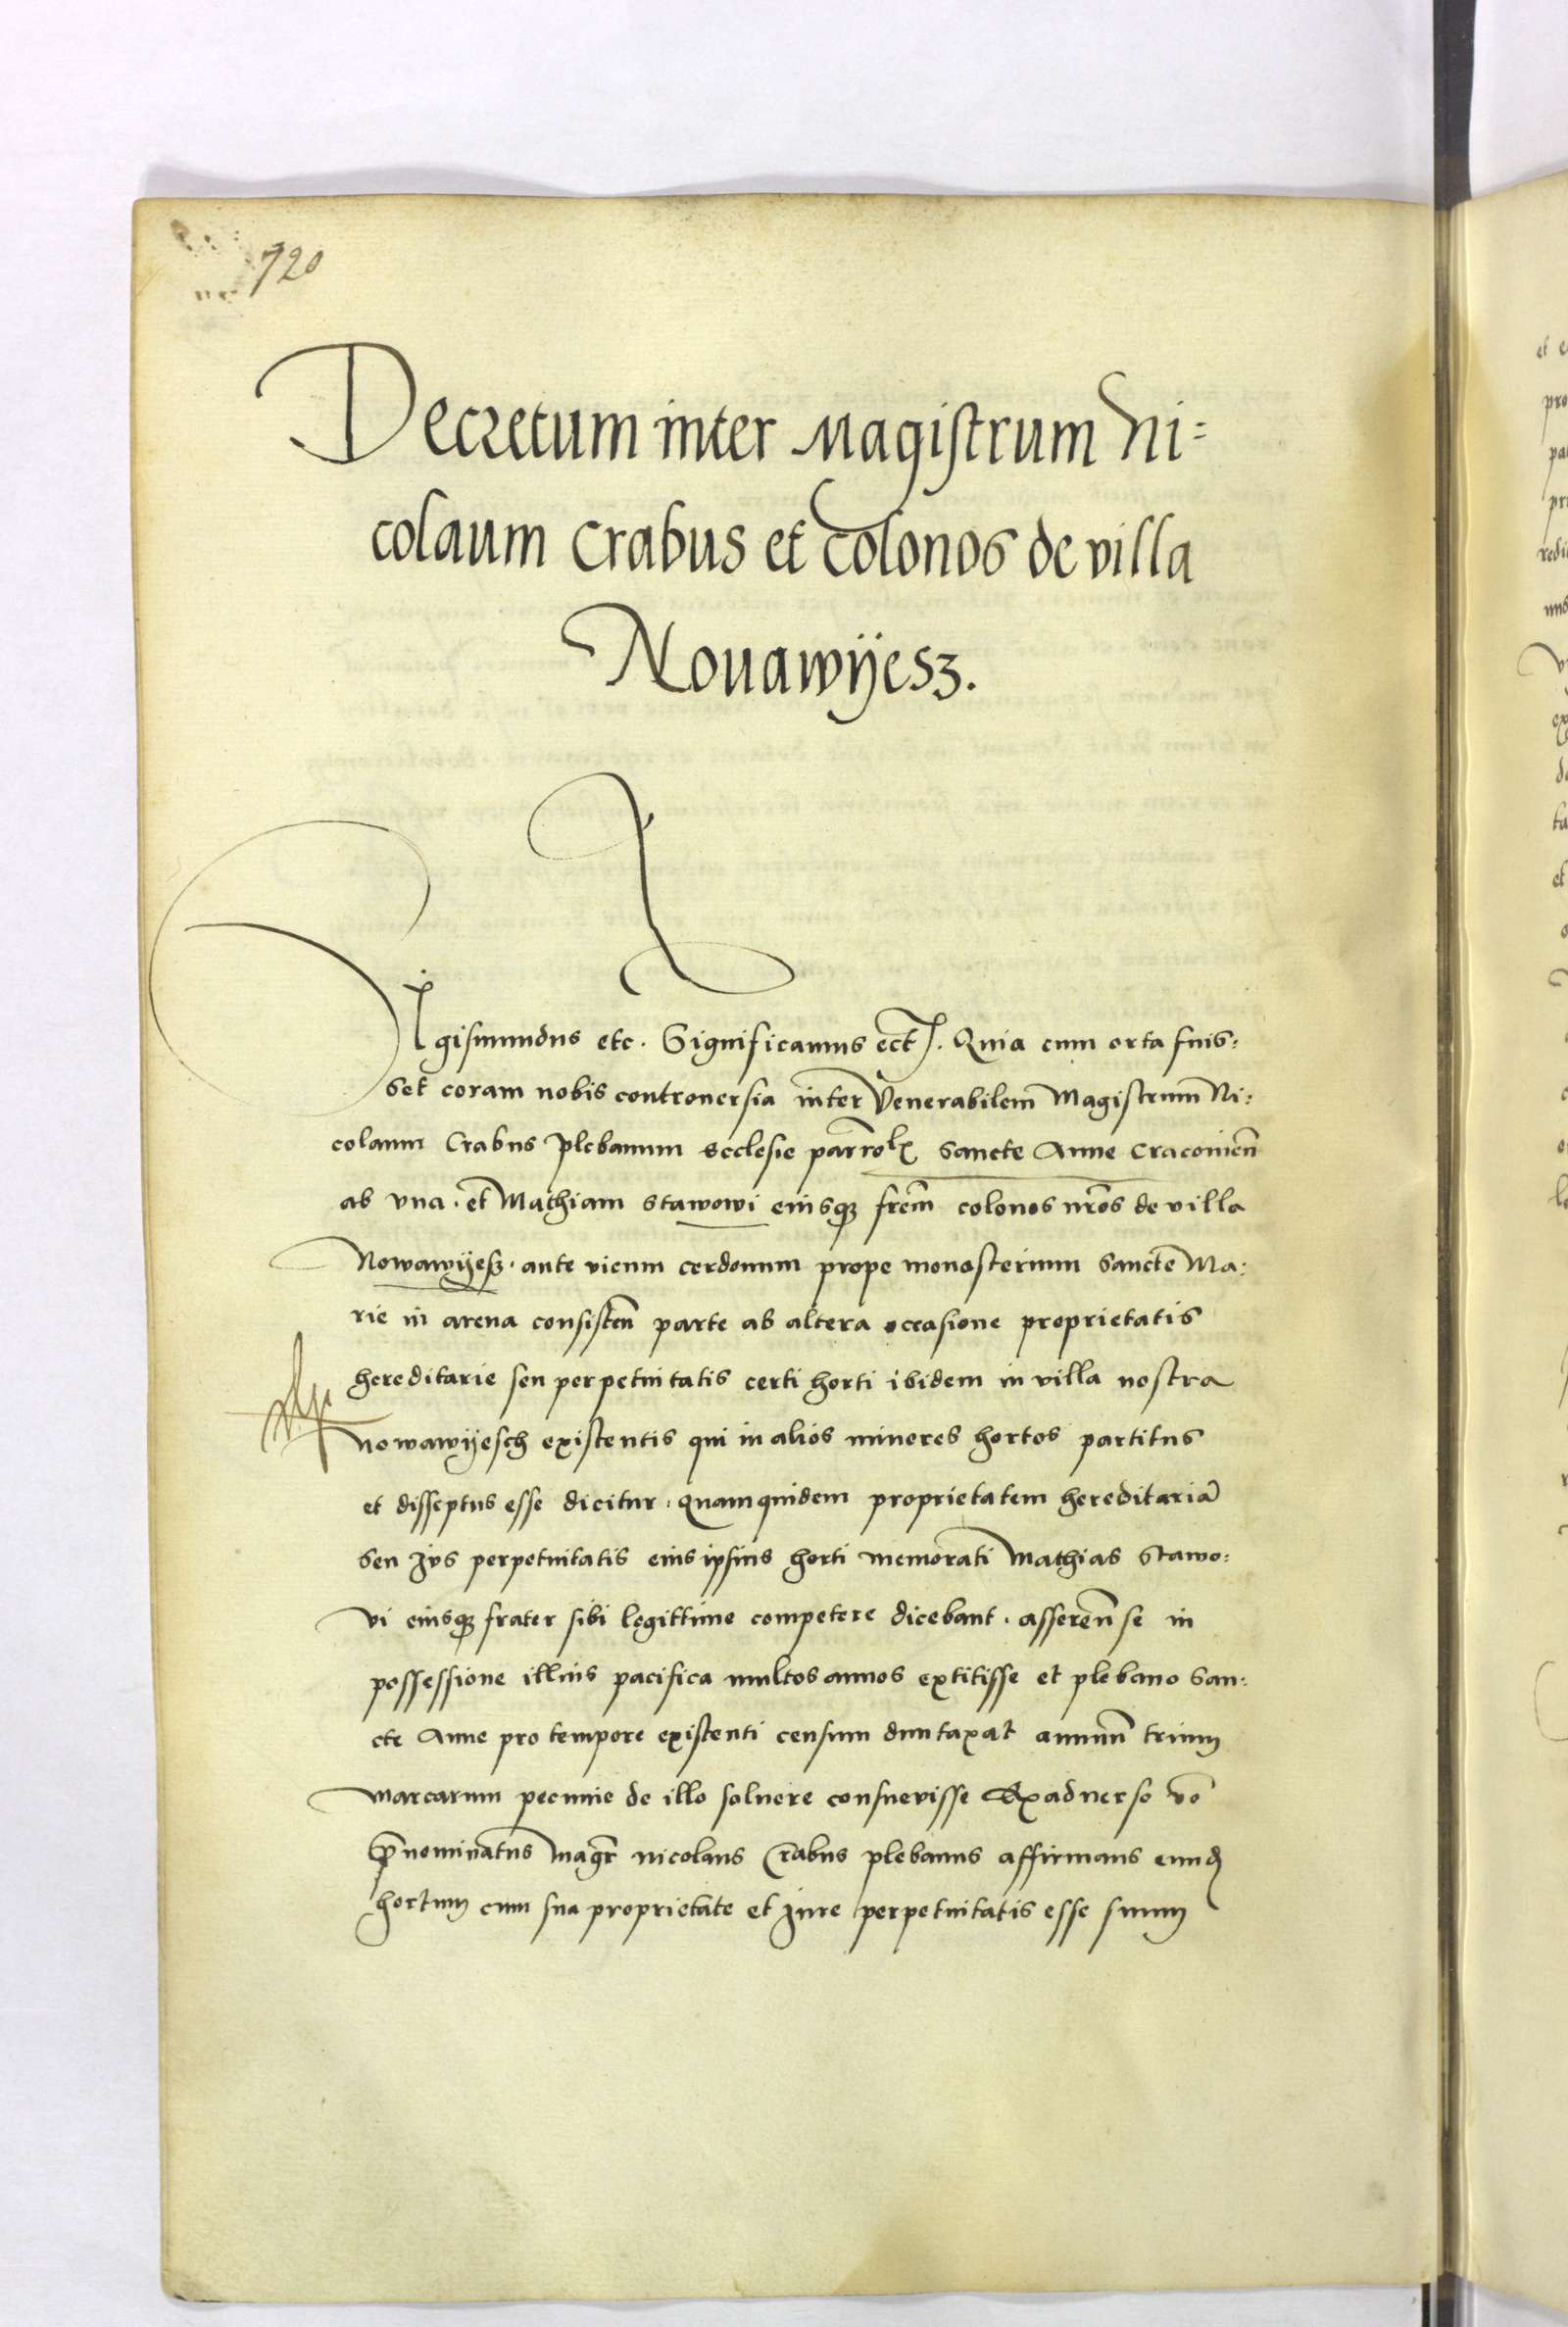 720
Decretum inter Magistrum Ni=
colaum Crabus et Colonos de villa
Nouawÿesz.
Sigismundus etc. Significamus ect. Quia cum orta fuis:
set coram nobis controuersia inter Venerabilem Magistrum Ni:
colaum Crabus Plebanum ecclesie parrol Sancte Anne Cracouien̄
ab vna. et Mathiam Stawowi eiusq frēm colonos nr̄os de villa
Nowawÿesz. ante vicum cerdonum prope monasterium Sancte Ma:
rie in arena consisten̄ parte ab altera occasione proprietatis
hereditarie seu perpetuitatis certi horti ibidem in villa nostra
nowawÿesch existentis qui in alios minores hortos partitus
et disseptus esse dicitur. quamquidem proprietatem hereditariā
Seu Jus perpetuitatis eius ipsius horti memorati Mathias Stawo:
vi eiusq frater sibi legittime competere dicebant. asseren̄ se in
possessione illius pacifica multos annos extitisse et plebano San:
cte Anne pro tempore existenti censum duntaxat annuū trium
marcarum pecunie de illo soluere consuevisse Exaduerso vō
p̄nominatus magr̄ nicolaus Crabus plebanus affirmans eund
hortum cum sua proprietate et Jure perpetuitatis esse suum